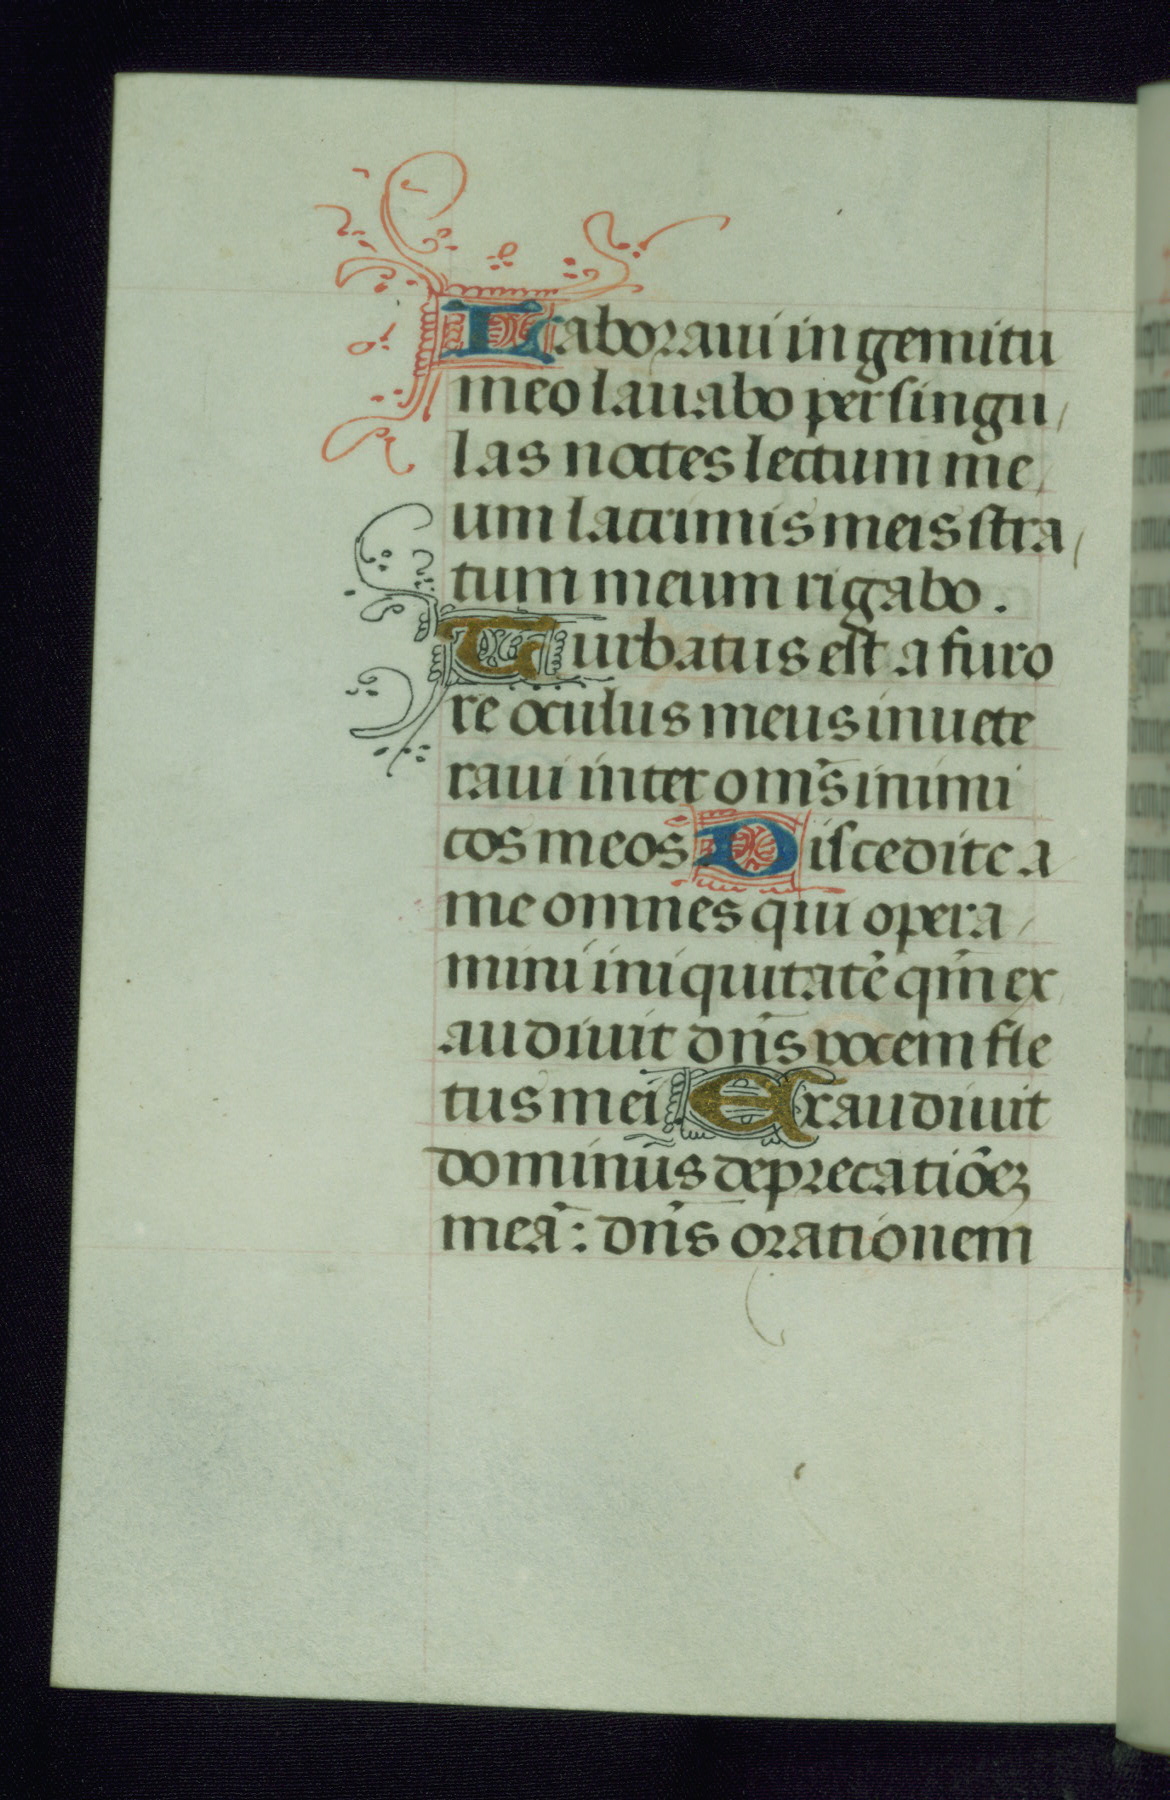 Laboraui in gemitu
meo lauabo per singu/
las noctes lectum me/
um lacrimis meis stra/
tum meum rigabo.
Turbatus est a furo
re oculus meus inuete
raui inter om̄s inimi
cos meos Discedite a
me omnes qui opera/
mini iniquitatē qm̄ ex/
audiuit dn̄s vocem fle
tus mei. Exaudiuit
dominus deprecatiōeꝫ
meā: dn̄s orationem